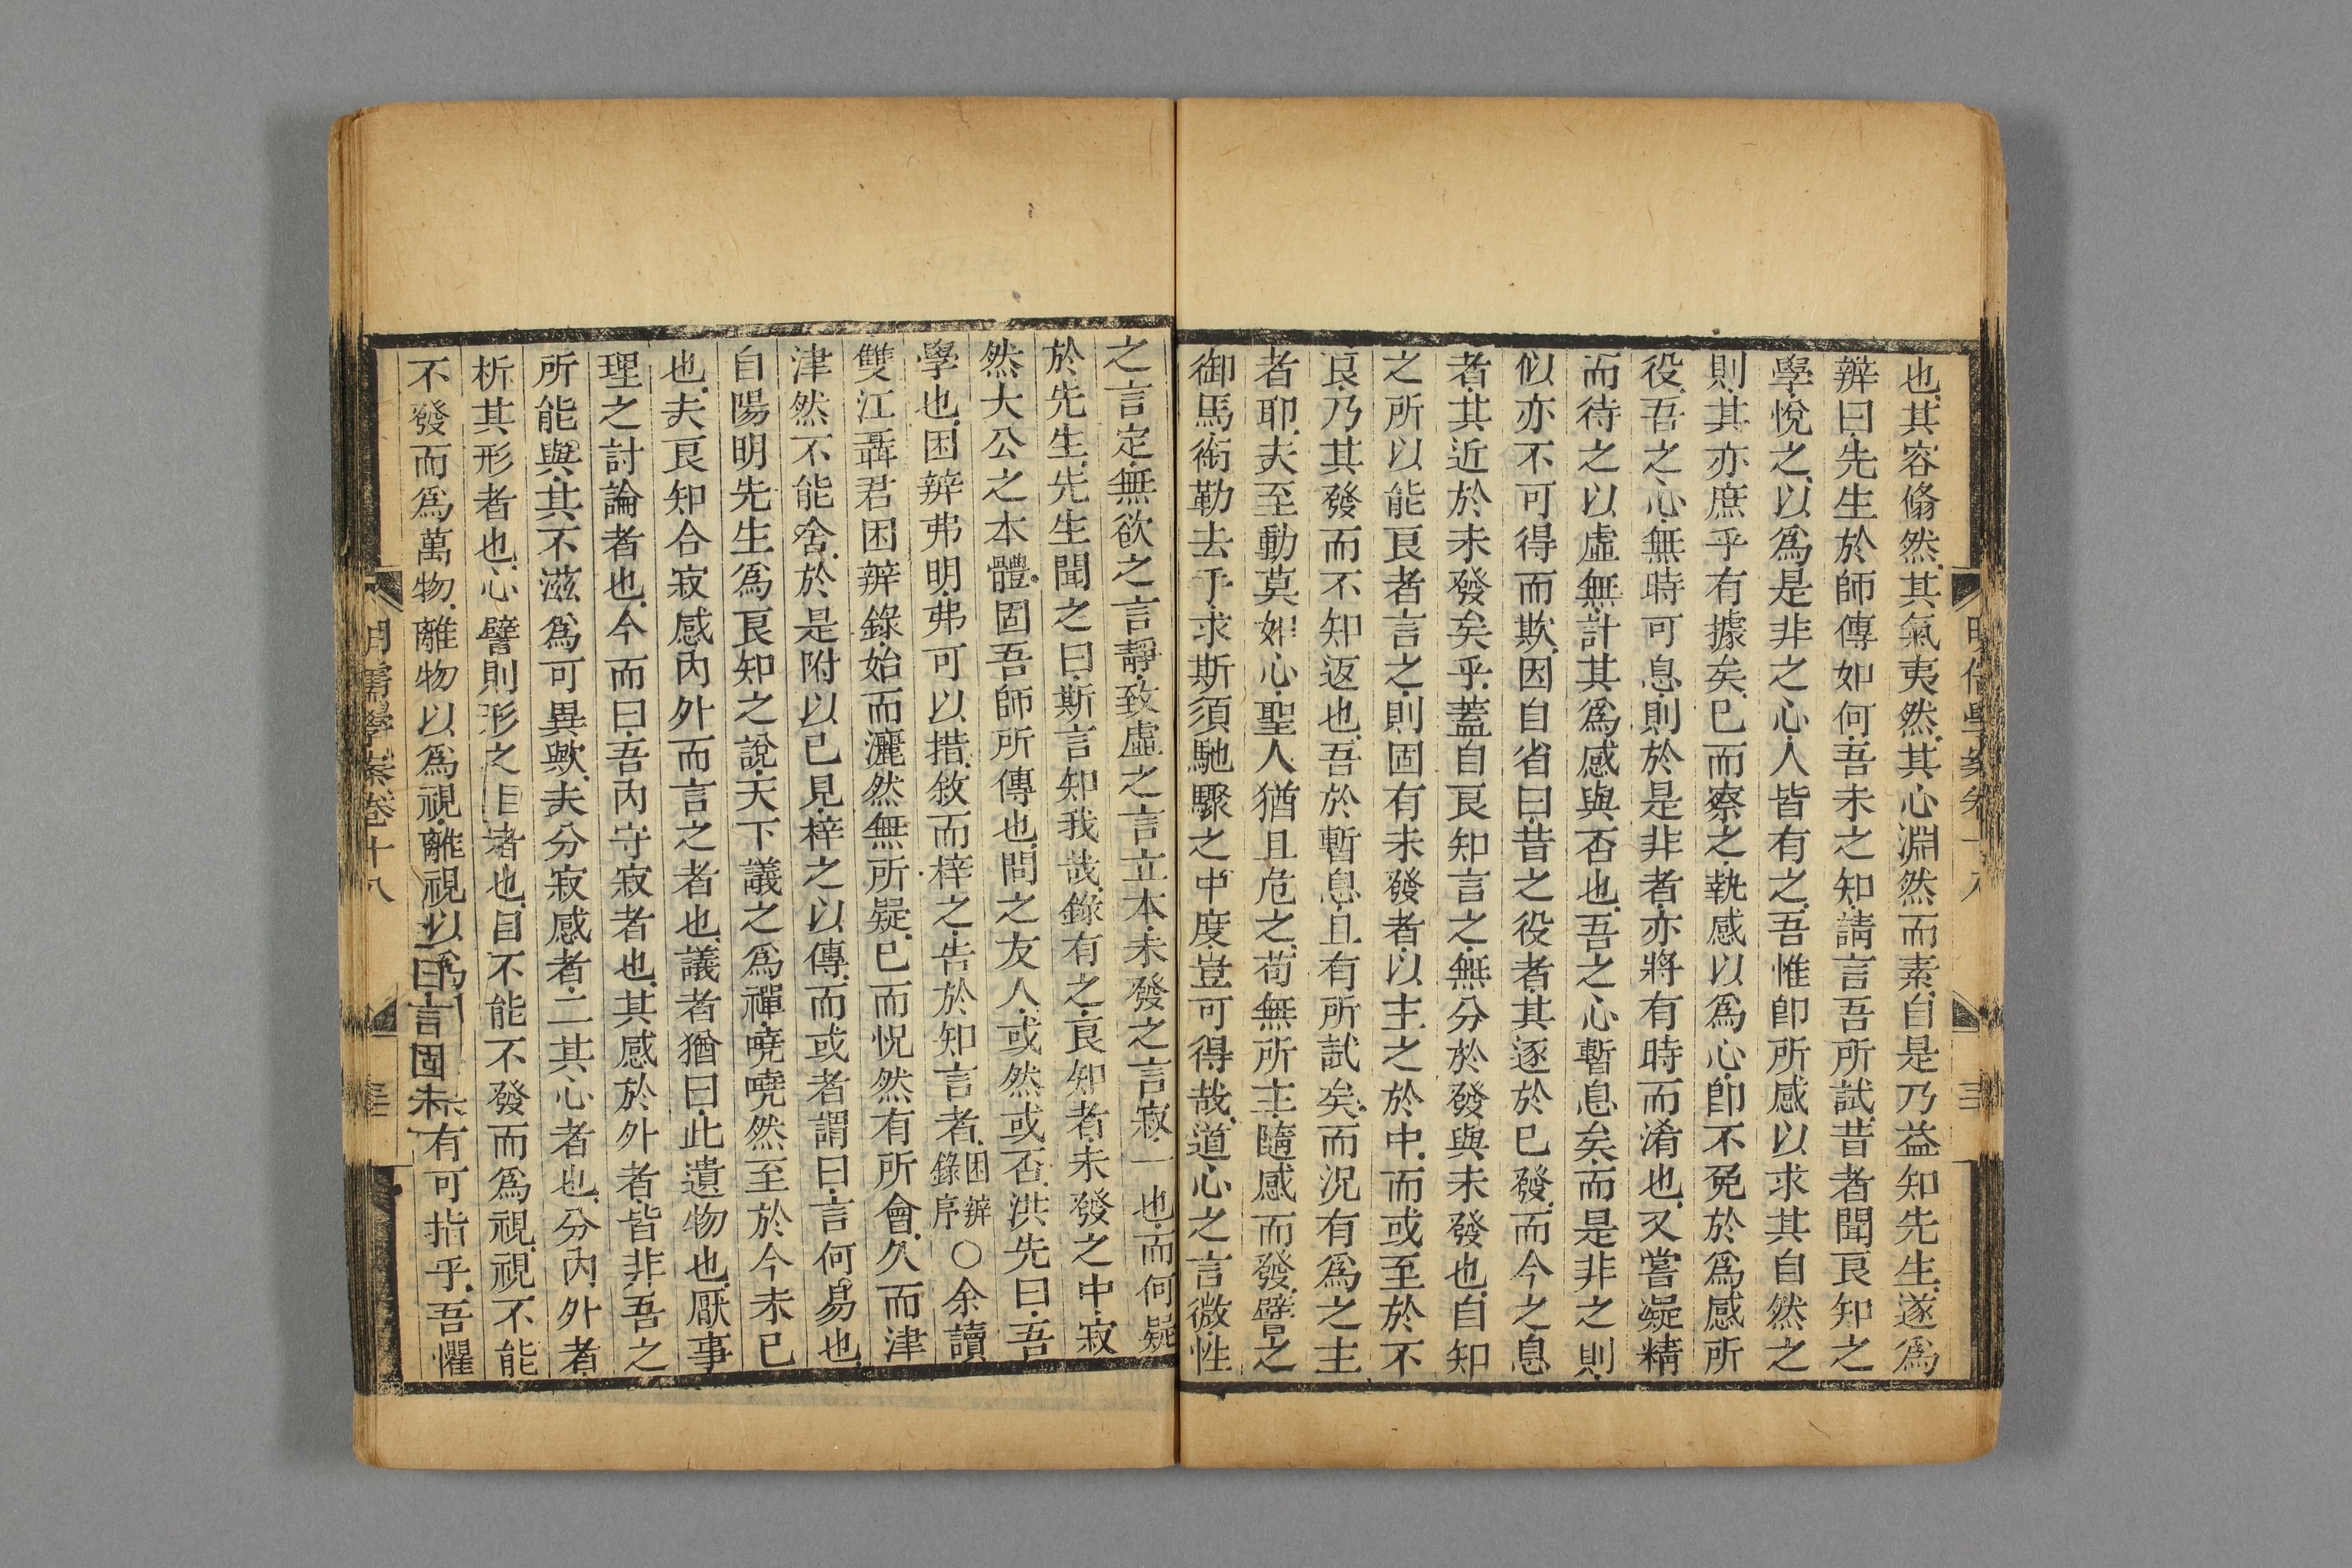 也其容翛然其氣夷然其心淵然而素自是乃益知先生遂爲
辨曰先生於師傳如何吾未之知請言吾所試昔者聞良知之
學悅之以爲是非之心人皆有之吾惟卽所感以求其自然之
則其亦庶乎有據矣已而察之執感以爲心卽不免於爲感所
役吾之心無時可息則於是非者亦將有時而淆也又嘗凝精
而待之以虛無計其爲感與否也吾之心暫息矣而是非之則
似亦不可得而欺因自省曰昔之役者其逐於已發而今之息
者其近於未發矣乎蓋自良知言之無分於發與未發也自知
之所以能良者言之則固有未發者以主之於中而或至於不
良乃其發而不知返也吾於暫息且有所試矣而況有爲之主
者耶夫至動莫如心聖人猶且危之苟無所主隨感而發譬之
御馬銜勒去手求斯須馳驟之中度豈可得哉道心之言微性
之言定無欲之言靜致虛之言立本未發之言寂一也而何疑
於先生先生聞之曰斯言知我哉錄有之良知者未發之中寂
然大公之本體固吾師所傳也問之友人或然或否洪先曰吾
學也困辨弗明弗可以措敘而梓之告於知言者困辨錄序〇余讀
雙江聶君困辨錄始而灑然無所疑已而怳然有所會久而津
津然不能舍於是附以己見梓之以傳而或者謂曰言何易也
自陽明先生爲良知之說天下議之爲禪嘵嘵然至於今未已
也夫良知合寂感內外而言之者也議者猶曰此遺物也厭事
理之討論者也今而曰吾內守寂者也其感於外者皆非吾之
所能與其不滋爲可異歟夫分寂感者二其心者也分內外者
析其形者也心譬則形之目者也目不能不發而爲視視不能
不發而爲萬物離物以爲視離視以爲目言固未有可指乎吾懼
明儒學案卷十八